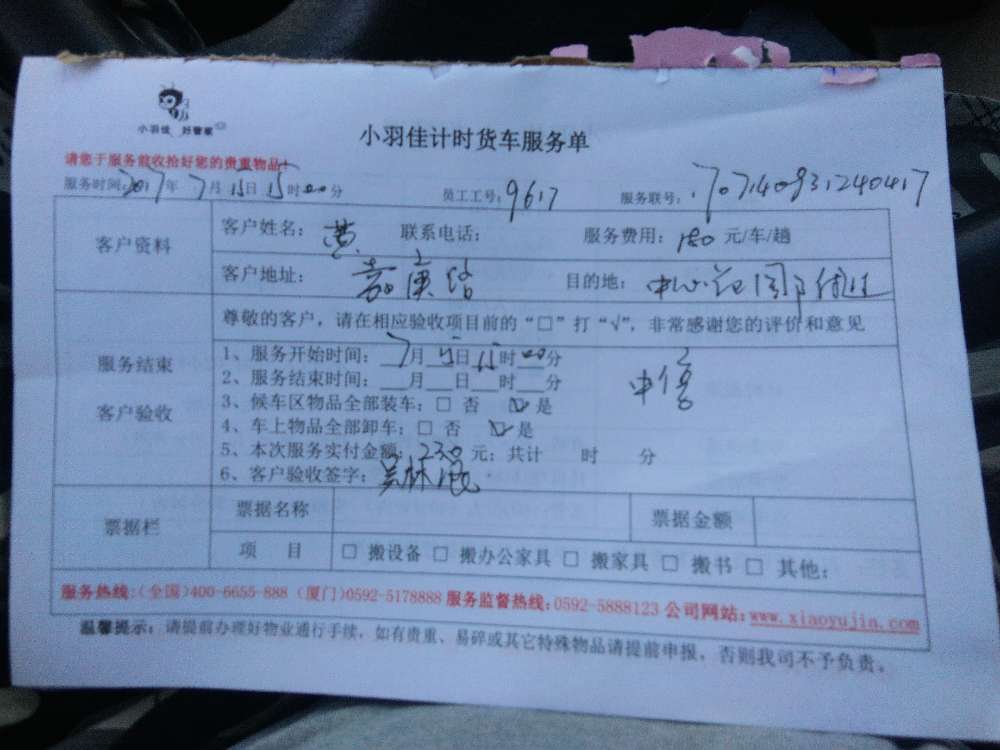 小羽佳 好管家
小羽佳计时货车服务单
请您于服务前收拾好您的贵重物品!
服务时间:2017年7月15日15时00分 员工工号:9617 服务联号:1707140931240417
客户资料 客户姓名:黄 联系电话: 服务费用:180元/车/趟
客户地址:嘉庚路 目的地:中心花园
尊敬的客户,请在相应验收项目前的“□”打“√”,非常感谢您的评价和意见
服务结束
客户验收
1、服务开始时间:7月15日15时00分
2、服务结束时间:___月___日___时___分
3、候车区物品全部装车:□ 否 ☑ 是
4、车上物品全部卸车:□ 否 ☑ 是
5、本次服务实付金额:230元:共计 时 分
6、客户验收签字:
票据栏 票据名称 票据金额
项 目 □ 搬设备 □ 搬办公家具 □ 搬家具 □ 搬书 □ 其他:
服务热线:(全国)400-6655-888 (厦门)0592-5178888 服务监督热线:0592-5888123 公司网站:www.xiaoyujia.com
温馨提示:请提前办理好物业通行手续,如有贵重、易碎或其它特殊物品请提前申报,否则我司不予负责。